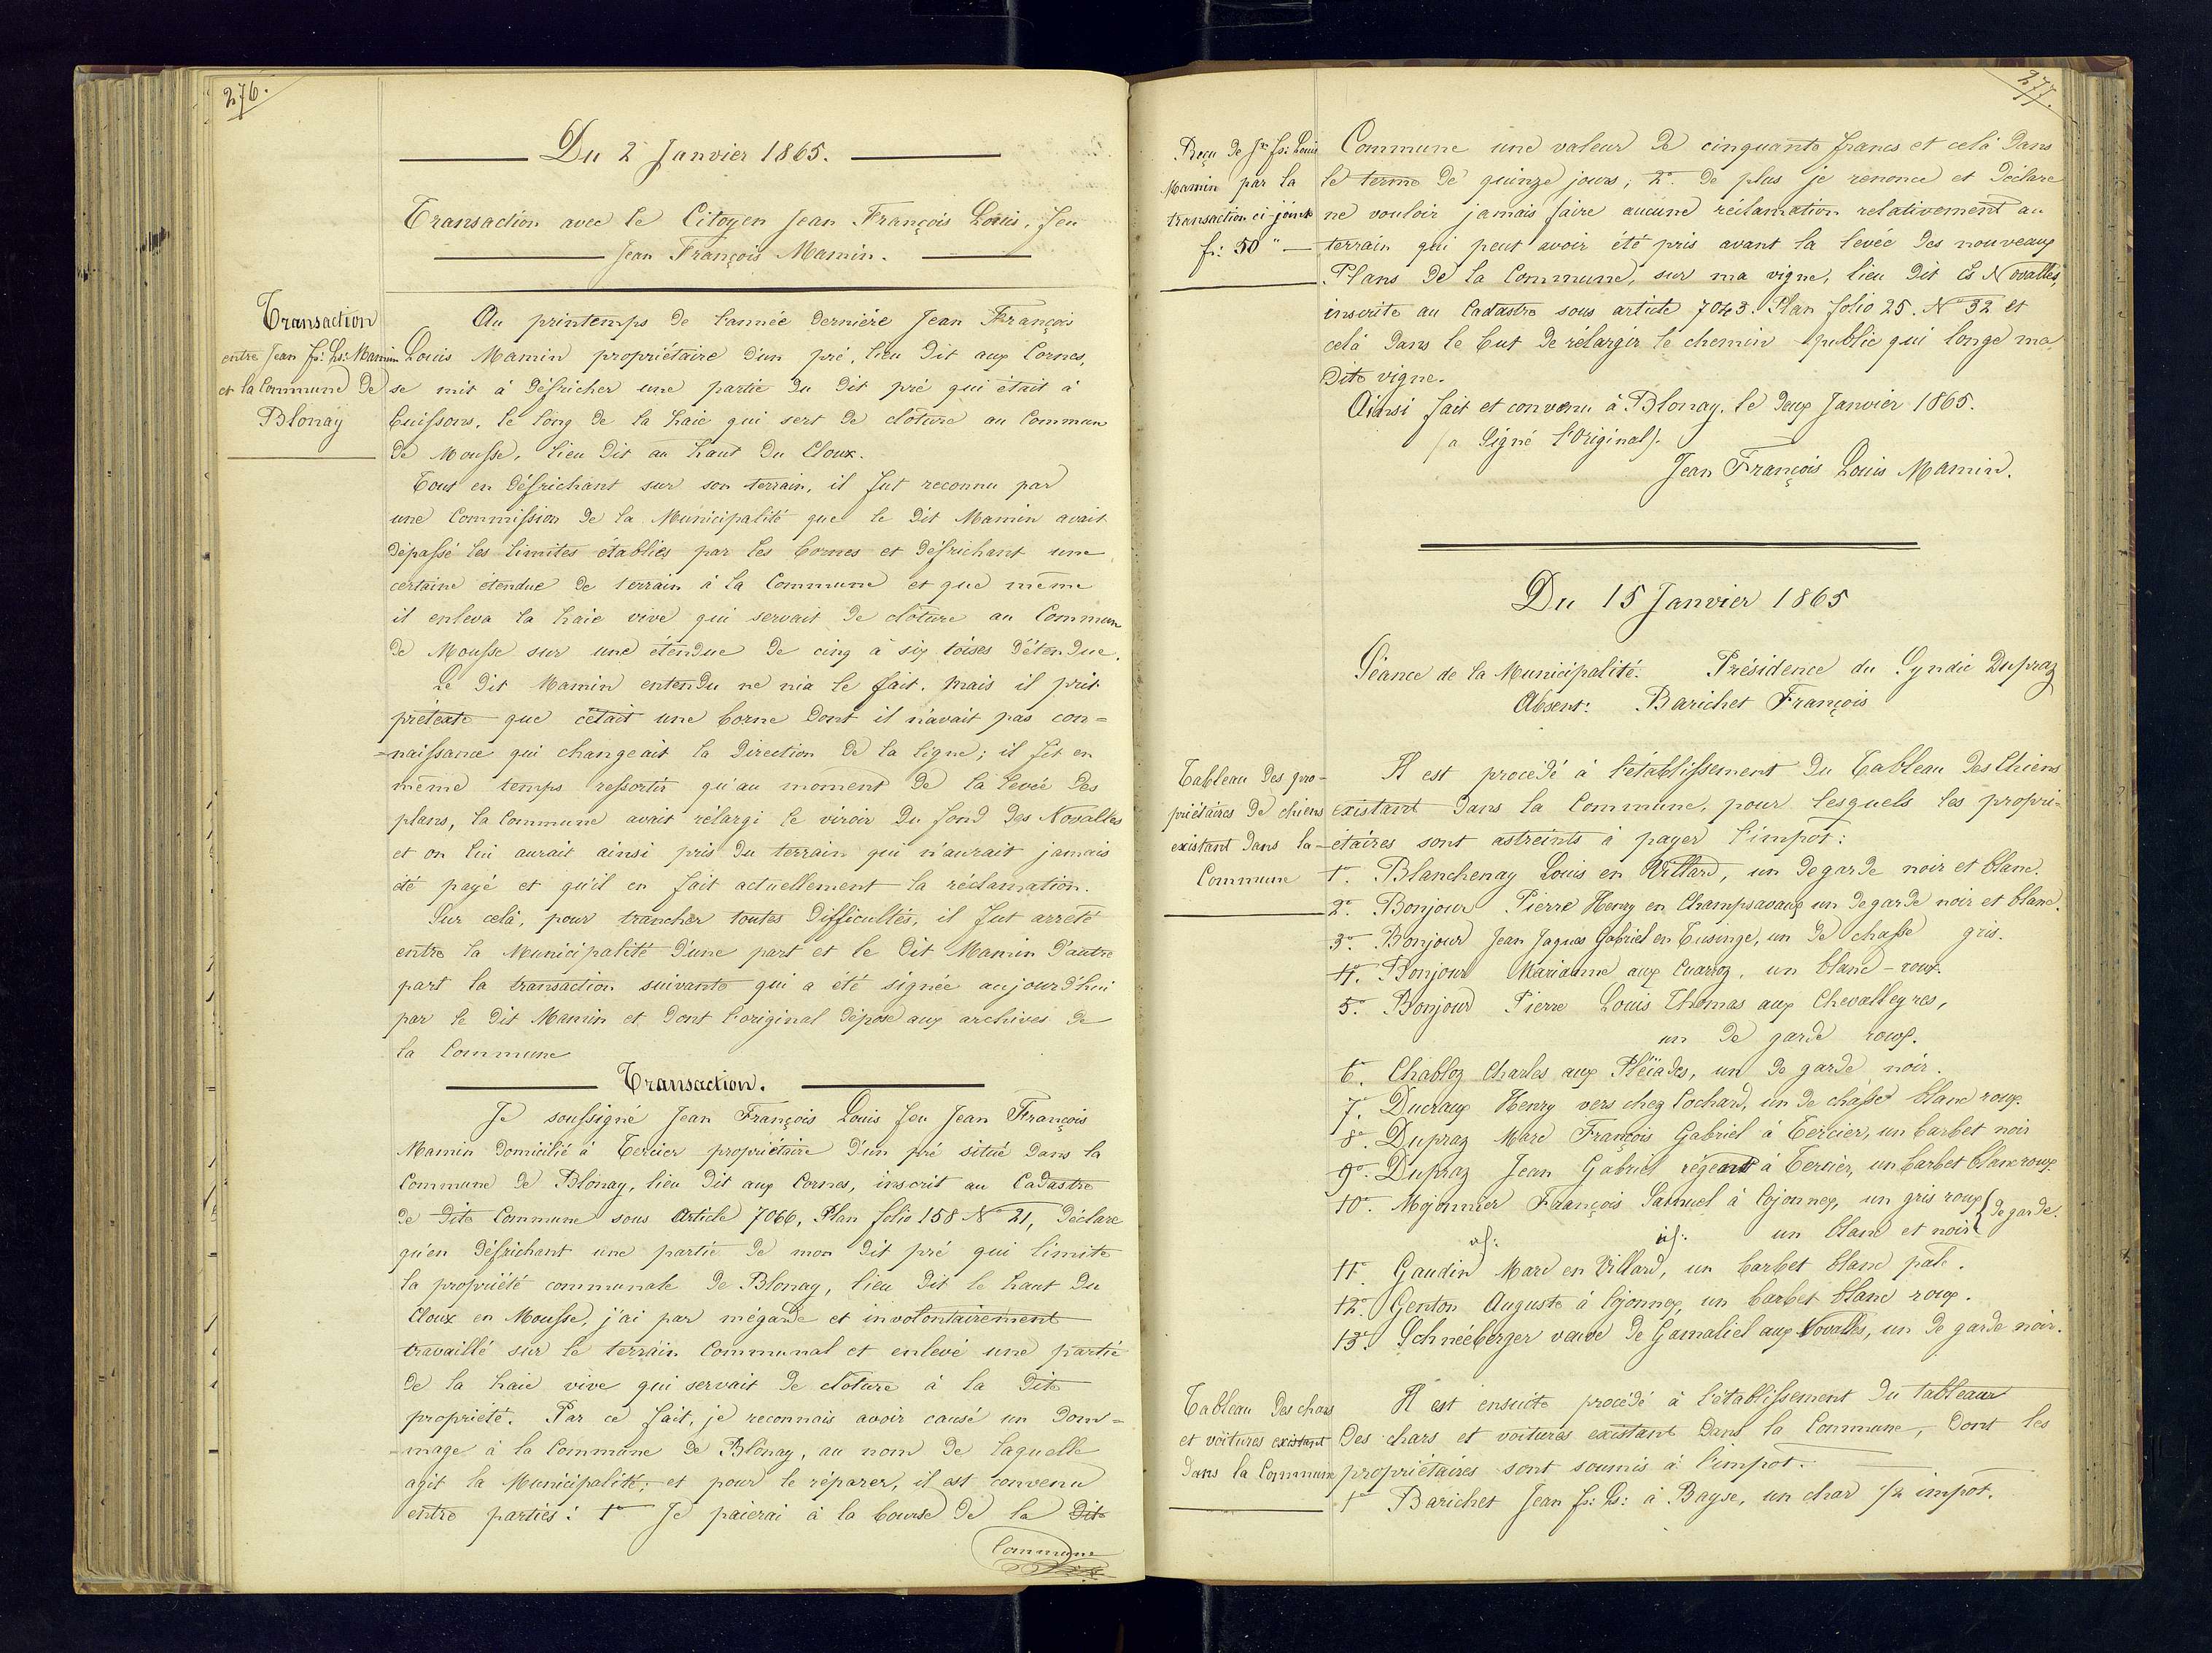 276.
Du 2 Janvier 1865.
Transaction avec le Citoyen Jean François Louis, feu
Jean François Mamin.
Transaction
entre Jean fs: Ls: Mamin
et la Commune de
Blonay
Au printemps de l'année dernière Jean François
Louis Mamin propriétaire d'un pré, lieu dit aux Cornes,
se mit à défricher une partie du dit pré qui était à
buissons, le long de la haie qui sert de clôture au Commun
de Mousse, lieu dit au haut du Cloux.
Tout en défrichant sur son terrain, il fut reconnu par
une Commission de la Municipalité que le dit Mamin avait
dépassé les limites établies par les bornes et défrichant une
certaine étendue de terrain à la Commune et que même
il enleva la haie vive qui servait de clôture au Commun
de Mousse sur une étendue de cinq à six toises d'étendue.
Le dit Mamin entendu ne nia le fait. mais il prit
prétexte que c'était une borne dont il n'avait pas con=
=naissance qui changeait la direction de la ligne; il fit en
même temps ressortir qu'au moment de la levée des
plans, la Commune avait rélargi le viroir du fond des Novalles
et on lui aurait ainsi pris du terrain qui n'aurait jamais
été payé et qu'il en fait actuellement la réclamation.
Sur celà, pour trancher toutes difficultés, il fut arrêté
entre la Municipalité d'une part et le dit Mamin d'autre
part la transaction suivante qui a été signée aujourd'hui
par le dit Mamin et dont l'original déposé aux archives de
la Commune
Transaction.
Je soussigné Jean François Louis feu Jean François
Mamin domicilié à Tercier propriétaire d'un pré situé dans la
Commune de Blonay, lieu dit aux Cornes, inscrit au Cadastre
de dite Commune sous Article 7066, Plan folio 158 N° 21, déclare
qu'en défrichant une partie de mon dit pré qui limite
la propriété communale de Blonay, lieu dit le haut du
Cloux en Mousse, j'ai par mégarde et involontairement
travaillé sur le terrain Communal et enlevé une partie
de la haie vive qui servait de clôture à la dite
propriété. Par ce fait, je reconnais avoir causé un dom=
=mage à la Commune de Blonay, au nom de laquelle
agit la Municipalité; et pour le réparer, il est convenu
entre parties: 1° Je paierai à la bourse de la dite
Commune
277.
Reçu de Jn fs: Louis
Mamin par la
transaction ci-jointe
fr: 50 "
Commune une valeur de cinquante francs et celà dans
le terme de quinze jours; 2°. de plus je renonce et déclare
ne vouloir jamais faire aucune réclamation relativement au
terrain qui peut avoir été pris avant la levée des nouveaux
Plans de la Commune, sur ma vigne, lieu dit Es Novalles,
inscrite au Cadastre sous article 7043. Plan folio 25. N° 32 et
celà dans le but de rélargir le chemin public qui longe ma
dite vigne.
Ainsi fait et convenu à Blonay, le deux Janvier 1865.
(a Signé l'Original).
Jean François Louis Mamin.
Du 15 Janvier 1865
Séance de la Municipalité. Présidence du Syndic Dupraz
Absent: Barichet François
Tableau des pro-
priétaires de chiens
existant dans la
Commune
Il est procédé à l'établissement du Tableau des Chiens
existant dans la Commune, pour lesquels les propri=
étaires sont astreints à payer l'impôt:
1°. Blanchenay Louis en Villard, un de garde noir et blanc.
2°. Bonjour Pierre Henry en Champsavaux un de garde noir et blanc.
3°. Bonjour Jean Jaques Gabriel en Tusinge, un de chasse gris.
4°. Bonjour Marianne aux Cuarroz, un blanc-roux.
5°. Bonjour Pierre Louis Thomas aux Chevalleyres,
un de garde roux.
6°. Chabloz Charles aux Pléïades, un de garde noir.
7°. Ducraux Henry vers chez Cochard, un de chasse blanc roux.
8°. Dupraz Marc François Gabriel à Tercier, un barbet noir
9°. Dupraz Jean Gabriel régent à Tercier, un barbet blanc roux.
10°. Mojonnier François Samuel à Cojonnex, un gris roux } de garde.
id: id: un blanc et noir
11°. Gaudin Marc en Villard, un barbet blanc pale.
12°. Genton Auguste à Cojonnex, un barbet blanc roux.
13°. Schnéeberger veuve de Gamaliel aux Novalles, un de garde noir.
Tableau des chars
et voitures existant
dans la Commune
Il est ensuite procédé à l'établissement du tableau
des chars et voitures existant dans la Commune, dont les
propriétaires sont soumis à l'impôt.
1° Barichet Jean fs: Ls: à Bayse, un char 1/2 impôt.